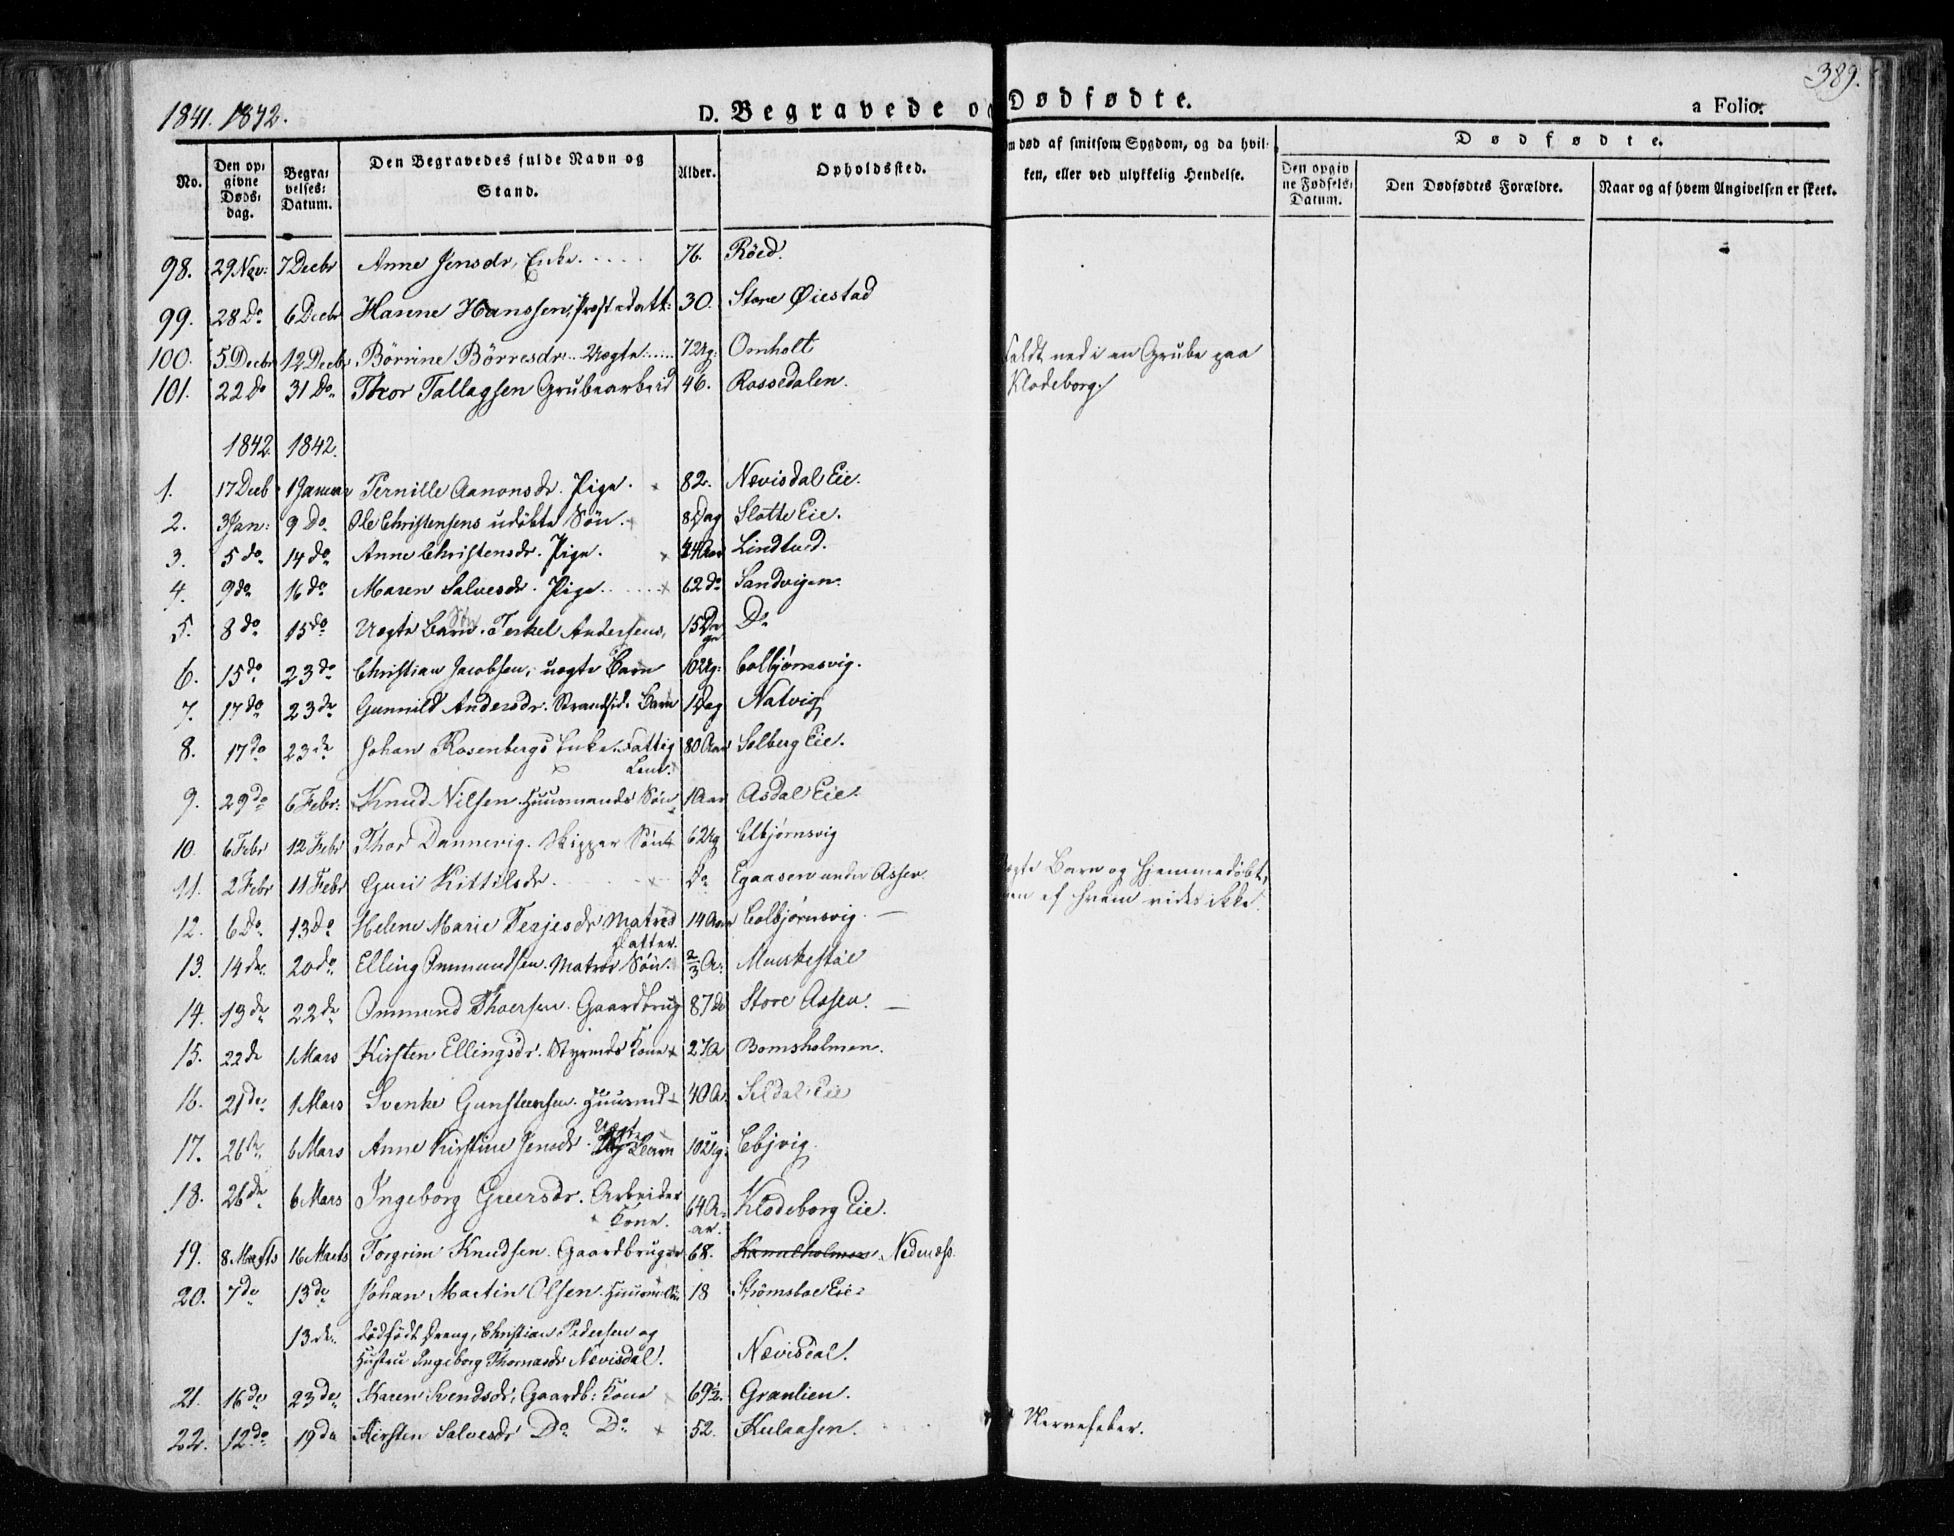 389.
1841. 1842.
D. Begravede o Dødfødte.
a Folio.
No.
Den op-
givne
Døds-
dag.
Begra-
velses-
Datum.
Den Begravedes fulde Navn og
Stand.
Alder.
Opholdssted.
m død af smitsom Sygdom, og da hvil-
ken, eller ved ulykkelig Hendelse.
Dødfødte.
Den opgiv
ne Fødsels-
Datum.
Den Dødfødtes Forældre.
Naar og af hvem Angivelsen er skeet.
98. 29 Nov: 7 Decbr Anne Jensdr, Enke 76. Röed.
99. 28 Do 6 Decbr Hanne Hanssen, 30. Store Øiestad
100. 5 Decbr 12 Decbr Börrine Börresdr. Uægte 7 Ug: Omholt
101. 22 Do 31 Do Thor Tallagsen Grubearbeid 46. Rossedalen. faldt ned i en Grube paa
Klodeborg.
1842 1842.
1. 17 Decb 1 Januar Pernille Aanonsdr. Pige. 82. Nævisdal Eie.
2. 3 Jan: 9 Do Ole Christensens udöbte Sön. 8 Dag Slotte Eie.
3. 5 do 14 do Anne Christensdr. Pige. 24 Aar Lindtved.
4. 9 do 16 do Maren Salvesdr. Pige 62 do Sandvigen.
5. 8 do 15 do Uægte Barn Sön. Terkel Andersens, 15 Da
ge Do
6. 15 do 23 do Christian Jacobsen, uægte Barn 10 Ug: Colbjørnsvig.
7. 17 do 23 do Gunnild Andersdr. Strandsid. Barn 1 Dag Natvig
8. 17 do 23 do Johan Rosenbergs Enke. Fattig
Lem. 80 Aar Solberg Eie.
9. 29 do 6 Febr: Knud Nilsen. Huusmands Sön 1 Aar Asdal Eie.
10. 6 Febr 12 Febr Thor Dannevig. Skipper Sön 6 Ug Colbjørnsvig
11. 2 Febr 11 Febr Guri Kittilsdr. Do Egaasen under Assen. ægte Barn og Hjemmedöbt,
men af hvem vides ikke.
12. 6 Do 13 Do Helene Marie Terjesdr Matros
datter. 14 Aar Colbjørnsvig. —
13. 14 do 20 do Elling Ommundsen. Matros Sön. 2/3 A:
14. 13 do 22 do Ommund Thoersen. Gaardbrug 87 do Store Assen. —
15. 22 do 1 Mars Kirsten Ellingsdr. Styrmds Kone 27 A Bomsholmen.
16. 21 do 1 Mars Svenke Gunsteensen. Huusmd 40 A. Seldal Eie
17. 26 do 6 Mars Anne Kirstine Jensdr. Uægte Barn 10 Ug: Ebjvig
18. 26 do 6 Mars Ingeborg Greersdr. Arbeider
Kone. 64 A-
ar. Klodeborg Eie.
19. 8 Marts 16 Marts Torgrim Knudsen. Gaardbruger 68. Nedenæss.
20. 7 do 13 do Johan Martin Olsen. Huusm: Sön 18 Strömsboe Eie.
13 do dödfödt Dreng, Christian Pedersen og
Hustru Ingeborg Thomasdr Nævisdal. Nævisdal.
21. 16 do 23 do Karen Svendsdr, Gaardb: Kone 69 1/2. Granlien.
22. 12 do 19 do Kirsten Salvesdr Do Do 52. Kulaasen. Nervefeber.